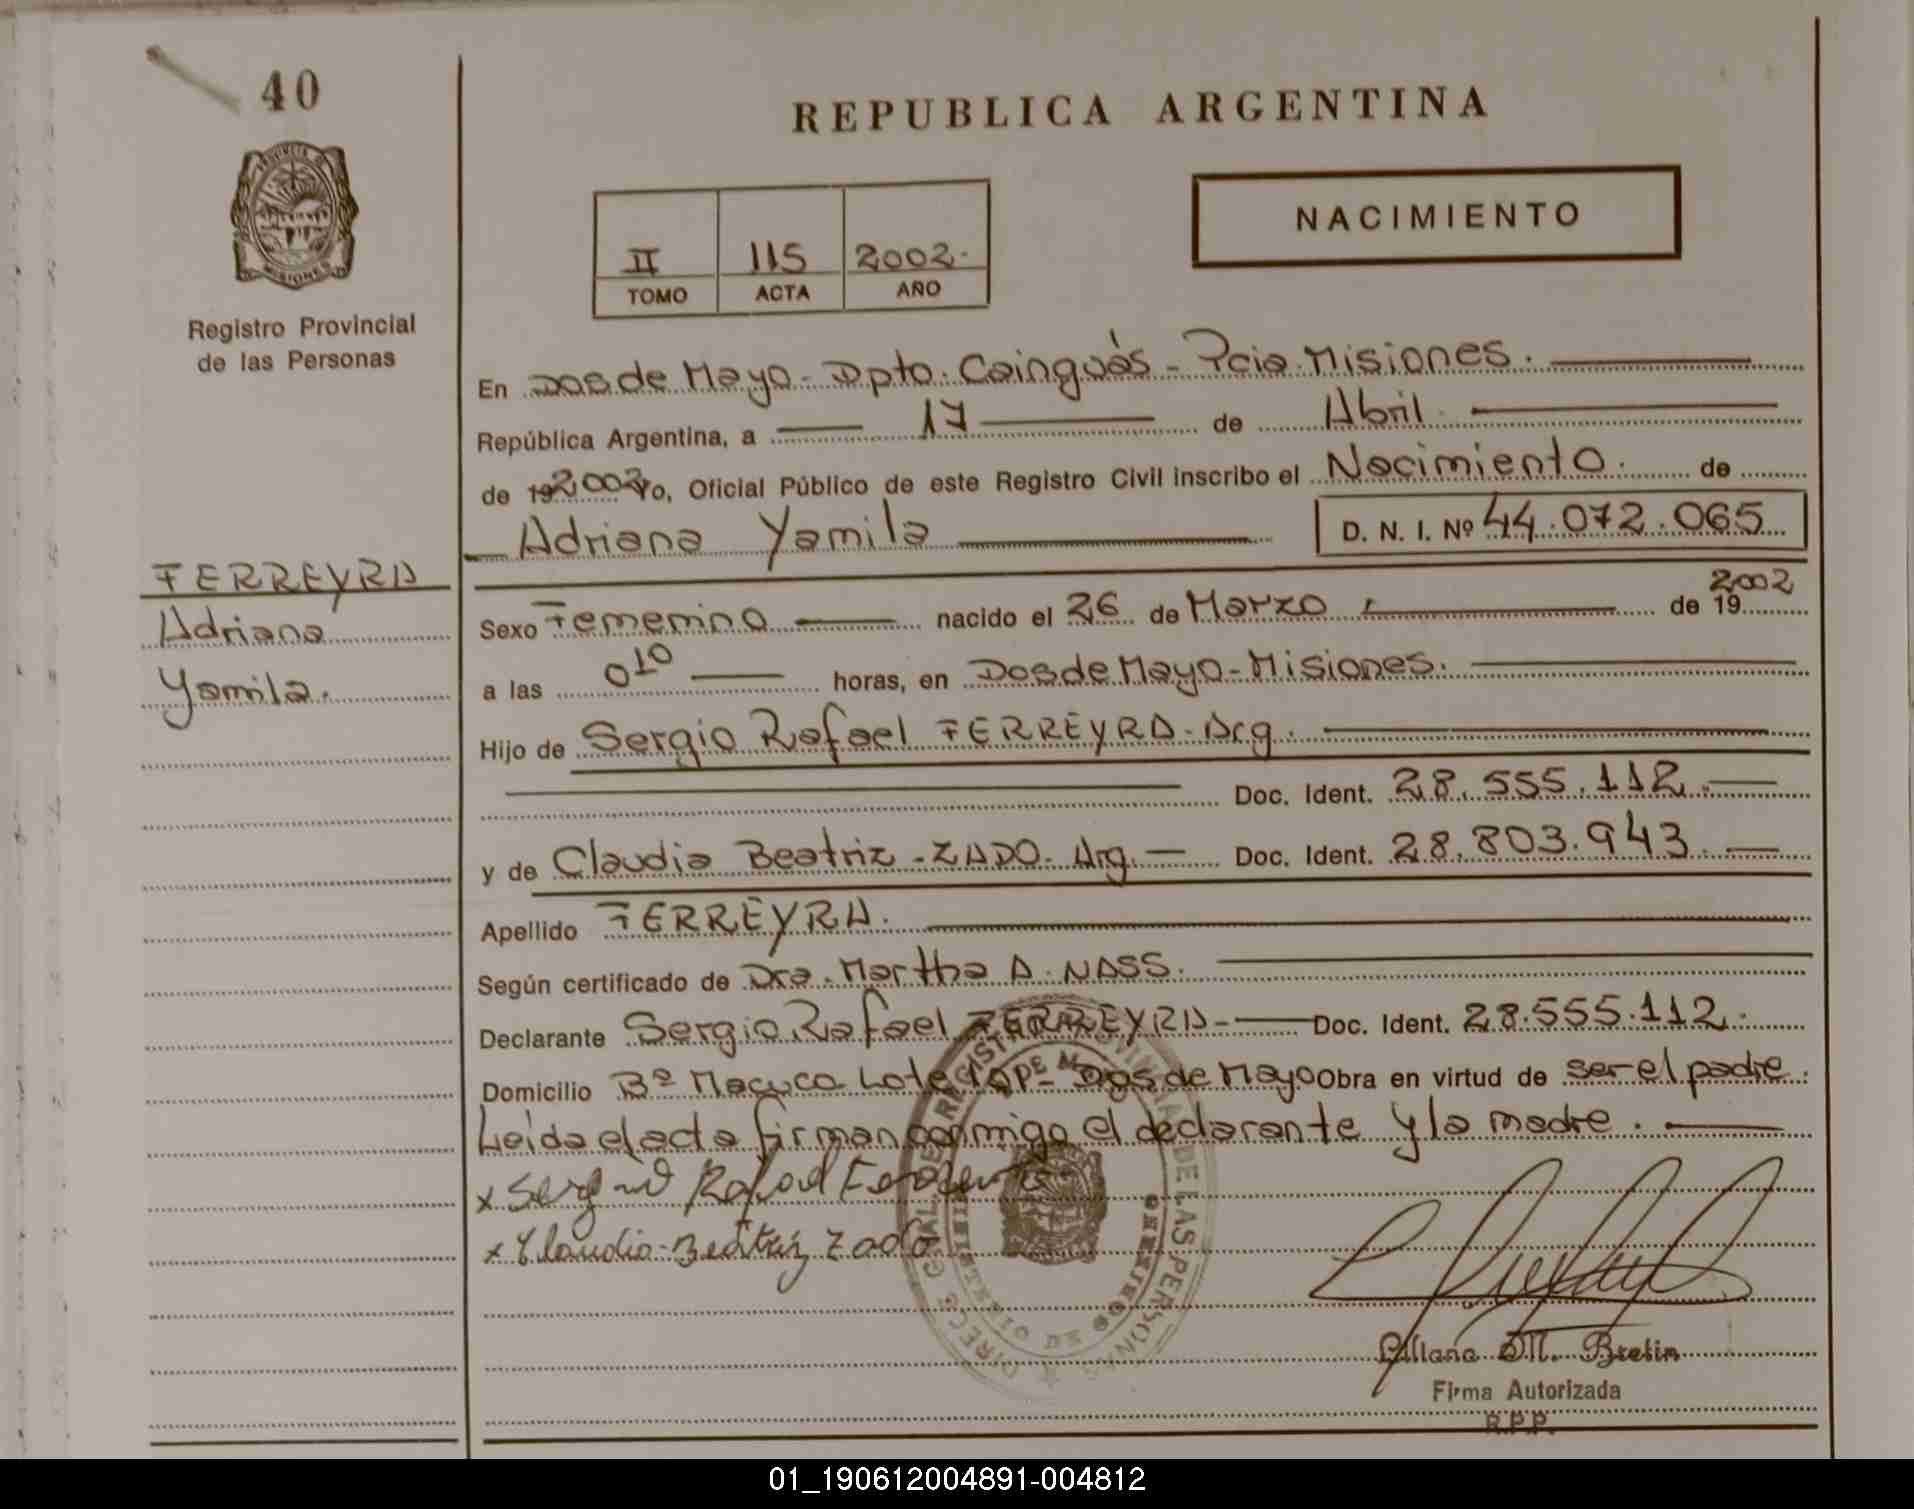 40
PROVINCIA DE
MISIONES
Registro Provincial
de las Personas
FERREYRA
Adriana
Yamila.
REPUBLICA ARGENTINA
NACIMIENTO
II 115 2002.
TOMO ACTA AÑO
En Dos de Mayo - Dpto. Cainguás - Pcia. Misiones.
República Argentina, a 17 de Abril.
de 192002 Yo, Oficial Público de este Registro Civil inscribo el Nacimiento. de
Adriana Yamila D. N. I. Nº 44.072.065
Sexo Femenino nacido el 26 de Marzo de 19 2002
a las 0 10 horas, en Dos de Mayo - Misiones.
Hijo de Sergio Rafael FERREYRA - Arg.
Doc. Ident. 28.555.112.
y de Claudia Beatriz - ZADO - Arg. Doc. Ident. 28.803.943.
Apellido FERREYRA.
Según certificado de Dra. Martha A. NASS.
Declarante Sergio Rafael FERREYRA - Doc. Ident. 28.555.112.
Domicilio Bº Macuca Lote Dos de Mayo Obra en virtud de ser el padre.
Leida el acta firman conmigo el declarante y la madre.
x Sergio Rafael Ferreyra
x Claudia Beatriz Zado
Liliana M. Bretin
Firma Autorizada
R.P.P.
01_190612004891-004812